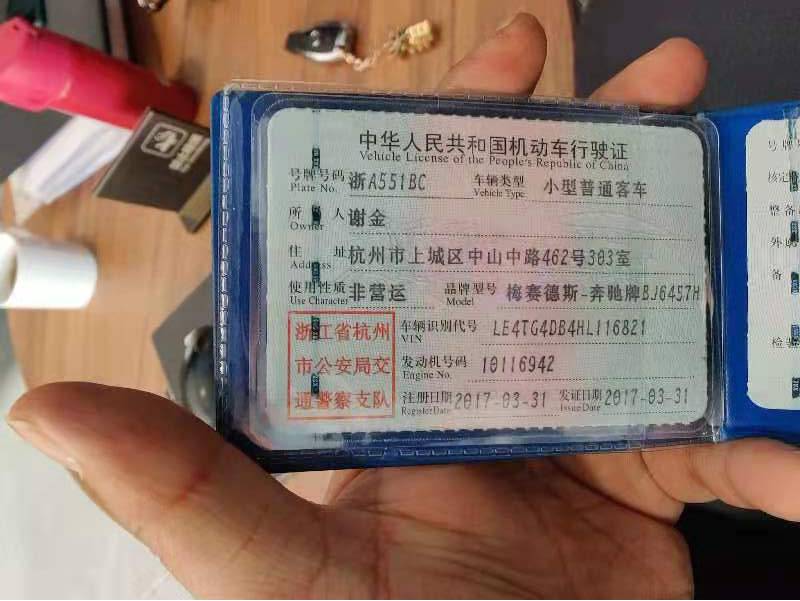 中华人民共和国机动车行驶证
Vehicle License of the People's Republic of China
号牌号码 浙A551BC 车辆类型 小型普通客车
Plate No. Vehicle Type
所 人 谢金
Owner
住 址 杭州市上城区中山中路462号303室
Address
使用性质 非营运 品牌型号 梅赛德斯-奔驰牌BJ6457H
Use Character Model
浙江省杭州
市公安局交
通警察支队
车辆识别代号 LE4TG4DB4HL116821
VIN
发动机号码 10116942
Engine No.
注册日期 2017-03-31 发证日期 2017-03-31
Register Date Issue Date
号牌
核定
整备
外
备
检验